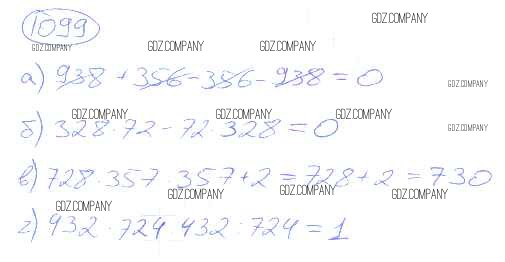 1099
GDZ.COMPANY
GDZ.COMPANY
GDZ.COMPANY GDZ.COMPANY
а) 938 + 356 - 356 - 938 = 0
GDZ.COMPANY
GDZ.COMPANY GDZ.COMPANY GDZ.COMPANY
б) 328 · 72 - 72 · 328 = 0
GDZ.COMPANY
в) 728 · 357 : 357 + 2 = 728 + 2 = 730
GDZ.COMPANY GDZ.COMPANY GDZ.COMPANY
GDZ.COMPANY
г) 432 · 724 : 432 : 724 = 1